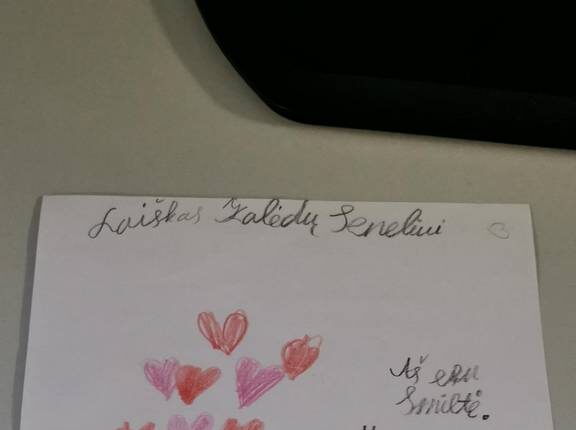 Laiškas Kalėdų Seneliui
Aš esu
Smiltė.